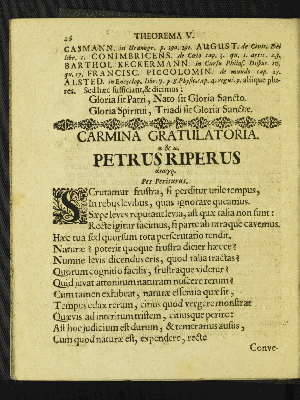 26 THEOREMA V.
CASMANN. in Uranogr. p. 290. 291. AUGUST. de Civit. Dei
libr. 1. CONIMBRICENS. de Cœlo cap. 3. qu. 1. artic. 2.
BARTHOL. KECKERMANN. in Cursu Philos. Disput. 10.
qu. 17. FRANCISC. PICCOLOMIN. de mundo cap. 27.
ALSTED. in Encyclop. libr. 9. p. 8. Physic. cap. 4. regul. 7. aliique plu-
res. Sed hæc sufficiant, & dicimus;
Gloria sit Patri, Nato sit Gloria Sancto.
Gloria Spiritui, Triadi sit Gloria Sanctæ.
CARMINA GRATULATORIA.
PETRUS RIPERUS
Per Periturus,
SCrutamur frustra, si perditur utile tempus,
In rebus levibus, quas ignorare queamus.
Sæpe leves reputant levia, ast quæ talia non sunt:
Recte igitur facimus, si parte ab utraque cavemus.
Hæc tua sed quorsum tota perscrutatio tendit,
Naturæ? poterit quoque frustra dicier hæcce?
Numne levis dicendus eris, quod talia tractas?
Quorum cognitio facilis, frustraque videtur?
Quid juvat attonitum naturam noscere rerum?
Cum tamen exhibeat, naturæ essentia quæ sit,
Tempus edax rerum, citius quod vergere monstrat
Quævis ad interitum tristem, citiusque perire:
Ast hoc judicium est durum, & temerarius ausus,
Cum quod naturæ est, expendere, recte
Conve-